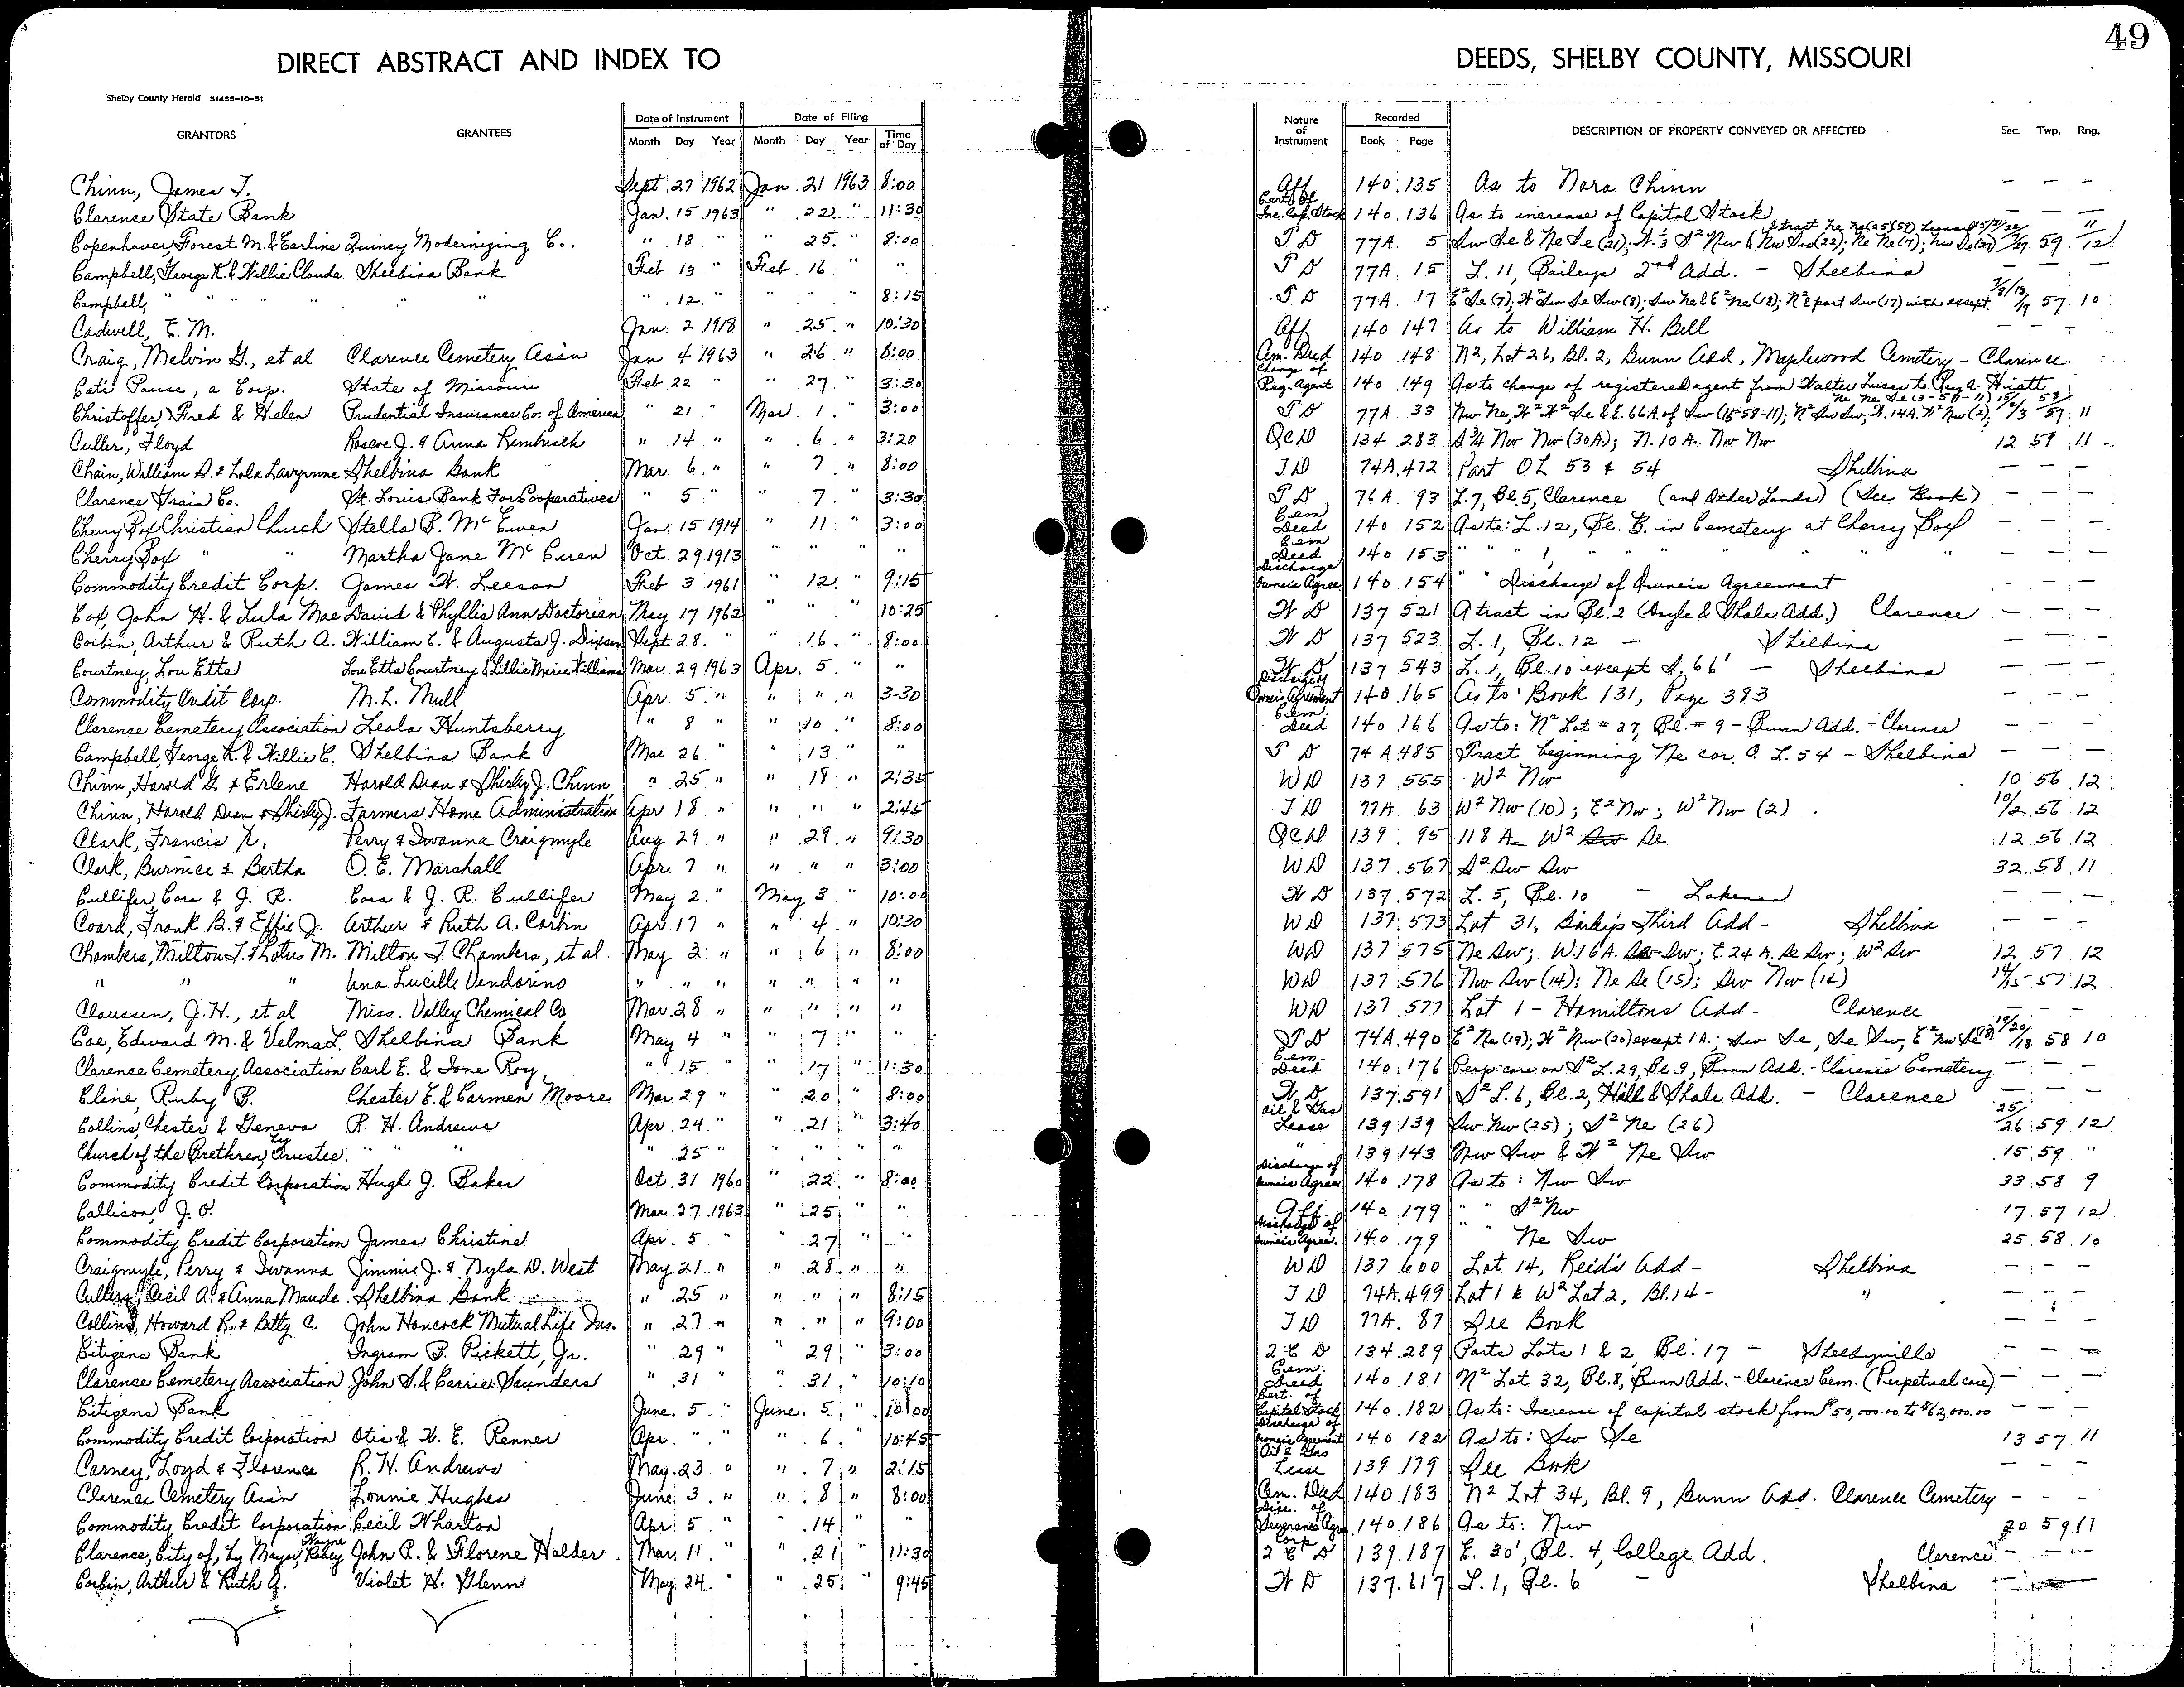 49
DIRECT ABSTRACT AND INDEX TO DEEDS, SHELBY COUNTY, MISSOURI
Shelby County Herald 51458-10-51
GRANTORS GRANTEES Date of Instrument Month Day Year Date of Filing Month Day Year Time of Day Nature of Instrument Recorded Book Page DESCRIPTION OF PROPERTY CONVEYED OR AFFECTED Sec. Twp. Rng.
Chinn, James T. Sept 27 1962 Jan 21 1963 8:00 Aff 140 135 As to Nora Chinn — — —
Clarence State Bank Jan. 15 1963 " 22 " 11:30 Cert. of Inc. Cap. Stock 140 136 As to increase of Capital Stock — — —
Copenhaver, Forest M. & Earline Quincy Modernizing Co. " 18 " " 25 " 8:00 T D 77A. 5 Sw Se & Ne Se (21); Ne Ne (7); 59
Campbell, George K. & Willie Claude Shelbina Bank Feb 13 " Feb 16 " " T D 77A. 15 L. 11, Baileys 2nd Add. — Shelbina — — —
Campbell, " " " " " " " 12 " " " " 8:15 T D 77A 17 E² Se (7); W² Sw Se Sw (8); Sw Ne & E² Ne (18); N² part Sw (17) with except. 57 10
Cadwell, E. M. Jan 2 1918 " 25 " 10:30 Aff 140 147 As to William H. Bell — — —
Craig, Melvin G., et al Clarence Cemetery Ass'n Jan 4 1963 " 26 " 8:00 Cem. Deed 140 148 N², Lot 26, Bl. 2, Bunn Add, Maplewood Cemetery — Clarence
Cat's Pause, a Corp. State of Missouri Feb 22 " " 27 " 3:30 Change of Reg. Agent 140 149 As to change of registered agent from Walter to Ray A. Hiatt
Christoffer, Fred & Helen Prudential Insurance Co. of America " 21 " Mar. 1 " 3:00 T D 77A 33 Nw Ne, W² W² Se & E. 66A. of Sw (15-58-11); N² Sw Sw, W. 14A. W² Nw (2); 11
Culler, Floyd Roscoe J. & Anna Rembusch " 14 " " 6 " 3:20 QCD 134 283 S ¾ Nw Nw (30A); N. 10 A. Nw Nw 12 57 11
Chain, William S. & Lola Lavynne Shelbina Bank Mar. 6 " " 7 " 8:00 TD 74A. 472 Part OL 53 & 54 Shelbina — — —
Clarence Grain Co. St. Louis Bank For Cooperatives " 5 " " 7 " 3:30 T D 76A 93 L. 7, Bl. 5, Clarence (and Other Lands) (See Book) — — —
Cherry Box Christian Church Stella B. McEwen Jan 15 1914 " 11 " 3:00 Cem Deed 140 152 As to: L. 12, Bl. B. in Cemetery at Cherry Box — — —
Cherry Box " " Martha Jane McEwen Oct. 29 1913 " " " " Cem Deed 140 153 " " 1, " " " " " " — — —
Commodity Credit Corp. James W. Leeson Feb 3 1961 " 12 " 9:15 Discharge Owner's Agree. 140 154 " " Discharge of Owner's Agreement — — —
Cox, John H. & Lula Mae David & Phyllis Ann Doctorian May 17 1962 " " " 10:25 W D 137 521 A tract in Bl. 2 (Doyle & Shale Add.) Clarence — — —
Corbin, Arthur & Ruth A. William C. & Augusta J. Dixson Sept 28 " " 16 " 8:00 W D 137 523 L. 1, Bl. 12 — Shelbina — — —
Courtney, Lou Etta Lou Etta Courtney & Lillie Marie Williams Mar. 29 1963 Apr. 5 " " W D 137 543 L. 1, Bl. 10 except S. 66' — Shelbina — — —
Commodity Credit Corp. M. L. Mull Apr 5 " " " " 3-30 Discharge of Owner's Agreement 140 165 As to Book 131, Page 383 — — —
Clarence Cemetery Association Leola Huntsberry " 8 " " 10 " 8:00 Cem. Deed 140 166 As to: N² Lot # 27, Bl. # 9 — Bunn Add. — Clarence — — —
Campbell, George K. & Willie C. Shelbina Bank Mar 26 " " 13 " " T D 74A 485 Tract beginning Ne cor. O. L. 54 — Shelbina — — —
Chinn, Harold G. & Erlene Harold Dean & Shirley J. Chinn " 25 " " 18 " 2:35 WD 137 555 W² Nw 10 56 12
Chinn, Harold Dean & Shirley J. Farmers Home Administration Apr 18 " " " " 2:45 TD 77A. 63 W² Nw (10); E² Nw; W² Nw (2) 10/2 56 12
Clark, Francis N. Perry & Iwanna Craigmyle Aug 29 " " 29 " 9:30 QCD 139 95 118 A W² Se 12 56 12
Clark, Burnice & Bertha O. E. Marshall Apr. 7 " " " " 3:00 WD 137 567 S² Sw Sw 32 58 11
Cullifer, Cora & J. R. Cora & J. R. Cullifer May 2 " May 3 " 10:00 W D 137 572 L. 5, Bl. 10 — Lakenan — — —
Coard, Frank B. & Effie J. Arthur & Ruth A. Corbin Apr 17 " " 4 " 10:30 WD 137 573 Lot 31, Third Add — Shelbina — — —
Chambers, Milton T. & Lotus M. Milton T. Chambers, et al May 3 " " 6 " 8:00 WD 137 575 Ne Sw; W. 16A. Sw; E. 24 A. Se Sw; W² Sw 12 57 12
" " " Una Lucille Vendorino " " " " " " " WD 137 576 Nw Sw (14); Ne Se (15); Sw Nw (14) 14/15 57 12
Claussen, J. H., et al Miss. Valley Chemical Co Mar. 28 " " " " " WD 137 577 Lot 1 — Hamiltons Add — Clarence —
Coe, Edward M. & Velma L. Shelbina Bank May 4 " " 7 " " T D 74A. 490 E² Ne (19); W² Nw (20) except 1A.; Sw Se, Se Sw, E² Nw Se 19/20/18 58 10
Clarence Cemetery Association Carl E. & Ione Roy " 15 " " 17 " 1:30 Cem. Deed 140 176 Perp. care on S² L. 29, Bl. 9, Bunn Add. — Clarence Cemetery — — —
Cline, Ruby B. Chester E. & Carmen Moore Mar. 29 " " 20 " 8:00 W D 137. 591 S² L. 6, Bl. 2, Hall & Shale Add. — Clarence — — —
Collins, Chester & Geneva R. H. Andrews Apr. 24 " " 21 " 3:40 Oil & Gas Lease 139 139 Sw Nw (25); S² Ne (26) 25/26 59 12
Church of the Brethren, by Trustee " " " 25 " " " " " " 139 143 Nw Sw & W² Ne Sw 15 59 "
Commodity Credit Corporation Hugh J. Baker Oct 31 1960 " 22 " 8:00 Discharge of Owner's Agree 140 178 As to: Nw Sw 33 58 9
Callison, J. O. Mar. 27 1963 " 25 " " Aff 140 179 " " S² Nw 17 57 12
Commodity Credit Corporation James Christine Apr. 5 " " 27 " " Discharge of Owner's Agree. 140 179 " " Ne Sw 25 58 10
Craigmyle, Perry & Iwanna Jimmie J. & Nyla D. West May 21 " " 28 " " WD 137 600 Lot 14, Reid's Add — Shelbina — — —
Cullers, Cecil A. & Anna Maude Shelbina Bank " 25 " " " " 8:15 TD 74A. 499 Lot 1 & W² Lot 2, Bl. 14 — " — — —
Collins, Howard R. & Betty C. John Hancock Mutual Life Ins. " 27 " " " " 9:00 TD 77A. 87 See Book — — —
Citizens Bank Ingram B. Pickett, Jr. " 29 " " 29 " 3:00 2 C D 134 289 Parts Lots 1 & 2, Bl. 17 — Shelbyville — — —
Clarence Cemetery Association John S. & Carrie Saunders " 31 " " 31 " 10:10 Cem. Deed 140 181 N² Lot 32, Bl. 8, Bunn Add. — Clarence Cem. (Perpetual care) — — —
Citizens Bank June 5 " June 5 " 10:00 Cert. of Capital Stock 140 182 As to: Increase of capital stock from $50,000.00 to $62,000.00 — — —
Commodity Credit Corporation Otis & W. E. Renner Apr. " " " 6 " 10:45 Discharge of Owner's Agreement 140 182 As to: Sw Se 13 57 11
Carney, Loyd & Florence R. H. Andrews May 23 " " 7 " 2:15 Oil & Gas Lease 139 179 See Book — — —
Clarence Cemetery Ass'n Lonnie Hughes June 3 " " 8 " 8:00 Cem. Deed 140 183 N² Lot 34, Bl. 9, Bunn Add. Clarence Cemetery — — —
Commodity Credit Corporation Cecil Wharton Apr 5 " " 14 " " Disc. of Severance Agree. 140 186 As to: Nw 20 59 11
Clarence, City of, by Mayor, Wayne John R. & Florene Halder Mar. 11 " " 21 " 11:30 Corp 2 C D 139. 187 E. 30', Bl. 4, College Add. Clarence — — —
Corbin, Arthur & Ruth A. Violet H. Glenn May 24 " " 25 " 9:45 W D 137. 617 L. 1, Bl. 6 — Shelbina —